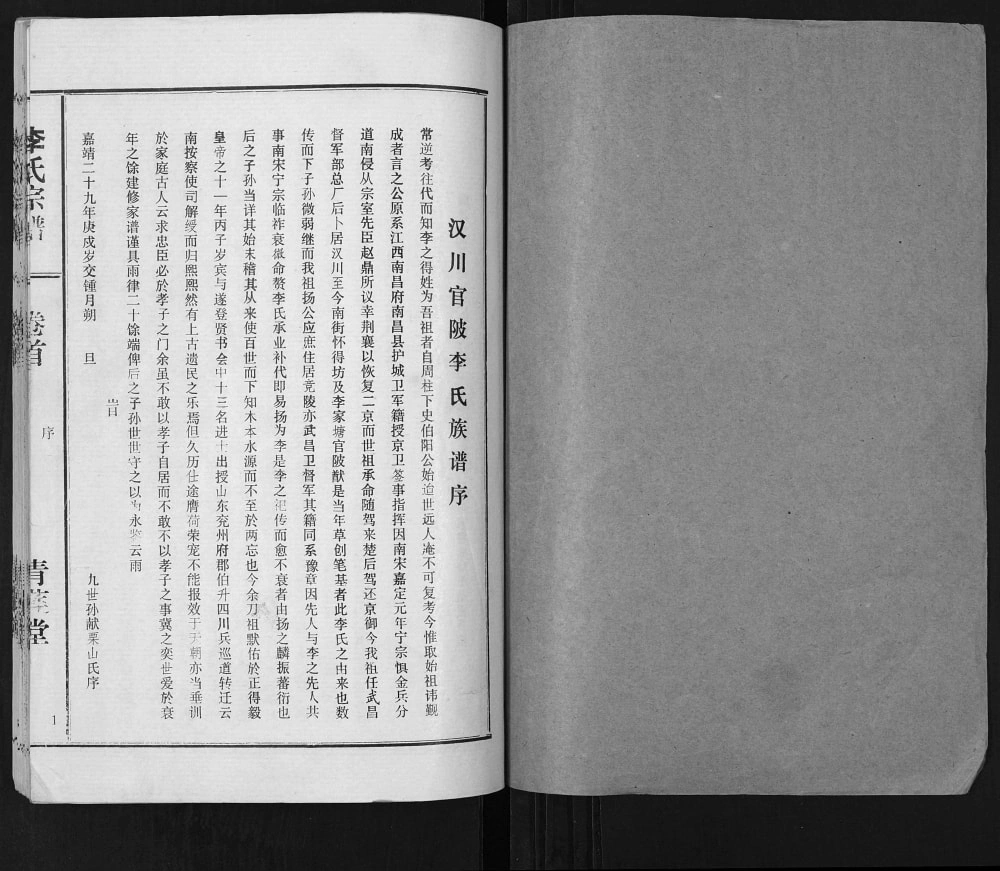 汉川官陂李氏族谱序
常逆考往代而知李之得姓为吾祖者自周柱下史伯阳公始追世远人淹不可复考今惟取始祖讳觐
成者言之公原系江西南昌府南昌县护城卫军籍授京卫签事指挥因南宋嘉定元年宁宗惧金兵分
道南侵从宗室先臣赵鼎所议幸荆襄以恢复二京而世祖承命随驾来楚后驾还京御今我祖任武昌
督军部总厂后卜居汉川至今南街怀得坊及李家塘官陂猷是当年草创笔基者此李氏之由来也数
传而下子孙微弱继而我祖扬公应庶住居竞陵亦武昌卫督军其籍同系豫章因先人与李之先人共
事南宋宁宗临祚衰微命赘李氏承业补代即易扬为李是李之祀传而愈不衰者由扬之麟振蕃衍也
后之子孙当详其始末稽其从来使百世而下知木本水源而不至於两忘也今余刀祖默佑於正得毅
皇帝之十一年丙子岁宾与遂登贤书会中十三名进士出授山东兖州府郡伯升四川兵巡道转迁云
南按察使司解绶而归熙熙然有上古遗民之乐焉但久历仕途膺荷荣宠不能报效于天朝亦当垂训
於家庭古人云求忠臣必於孝子之门余虽不敢以孝子自居而不敢不以孝子之事冀之奕世爱於衰
年之馀建修家谱谨具雨律二十馀端俾后之子孙世世守之以为永鉴云雨
旹
嘉靖二十九年庚戌岁交锺月朔 旦
九世孙献栗山氏序
李氏宗谱
卷首
序
青莲堂
1